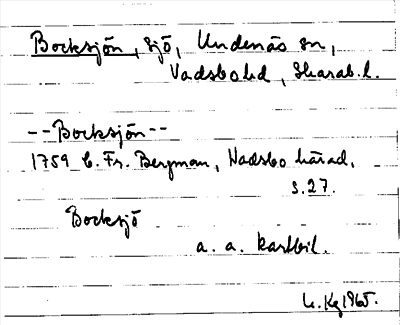 Bocksjön, sjö, Undenäs sn,
Vadsbo hd, Skarab. l.
--Bocksjön--
1759 C. Fr. Bergman, Wadsbo härad,
s. 27.
Bocksjö
a. a. kartbil.
Kg 1965.